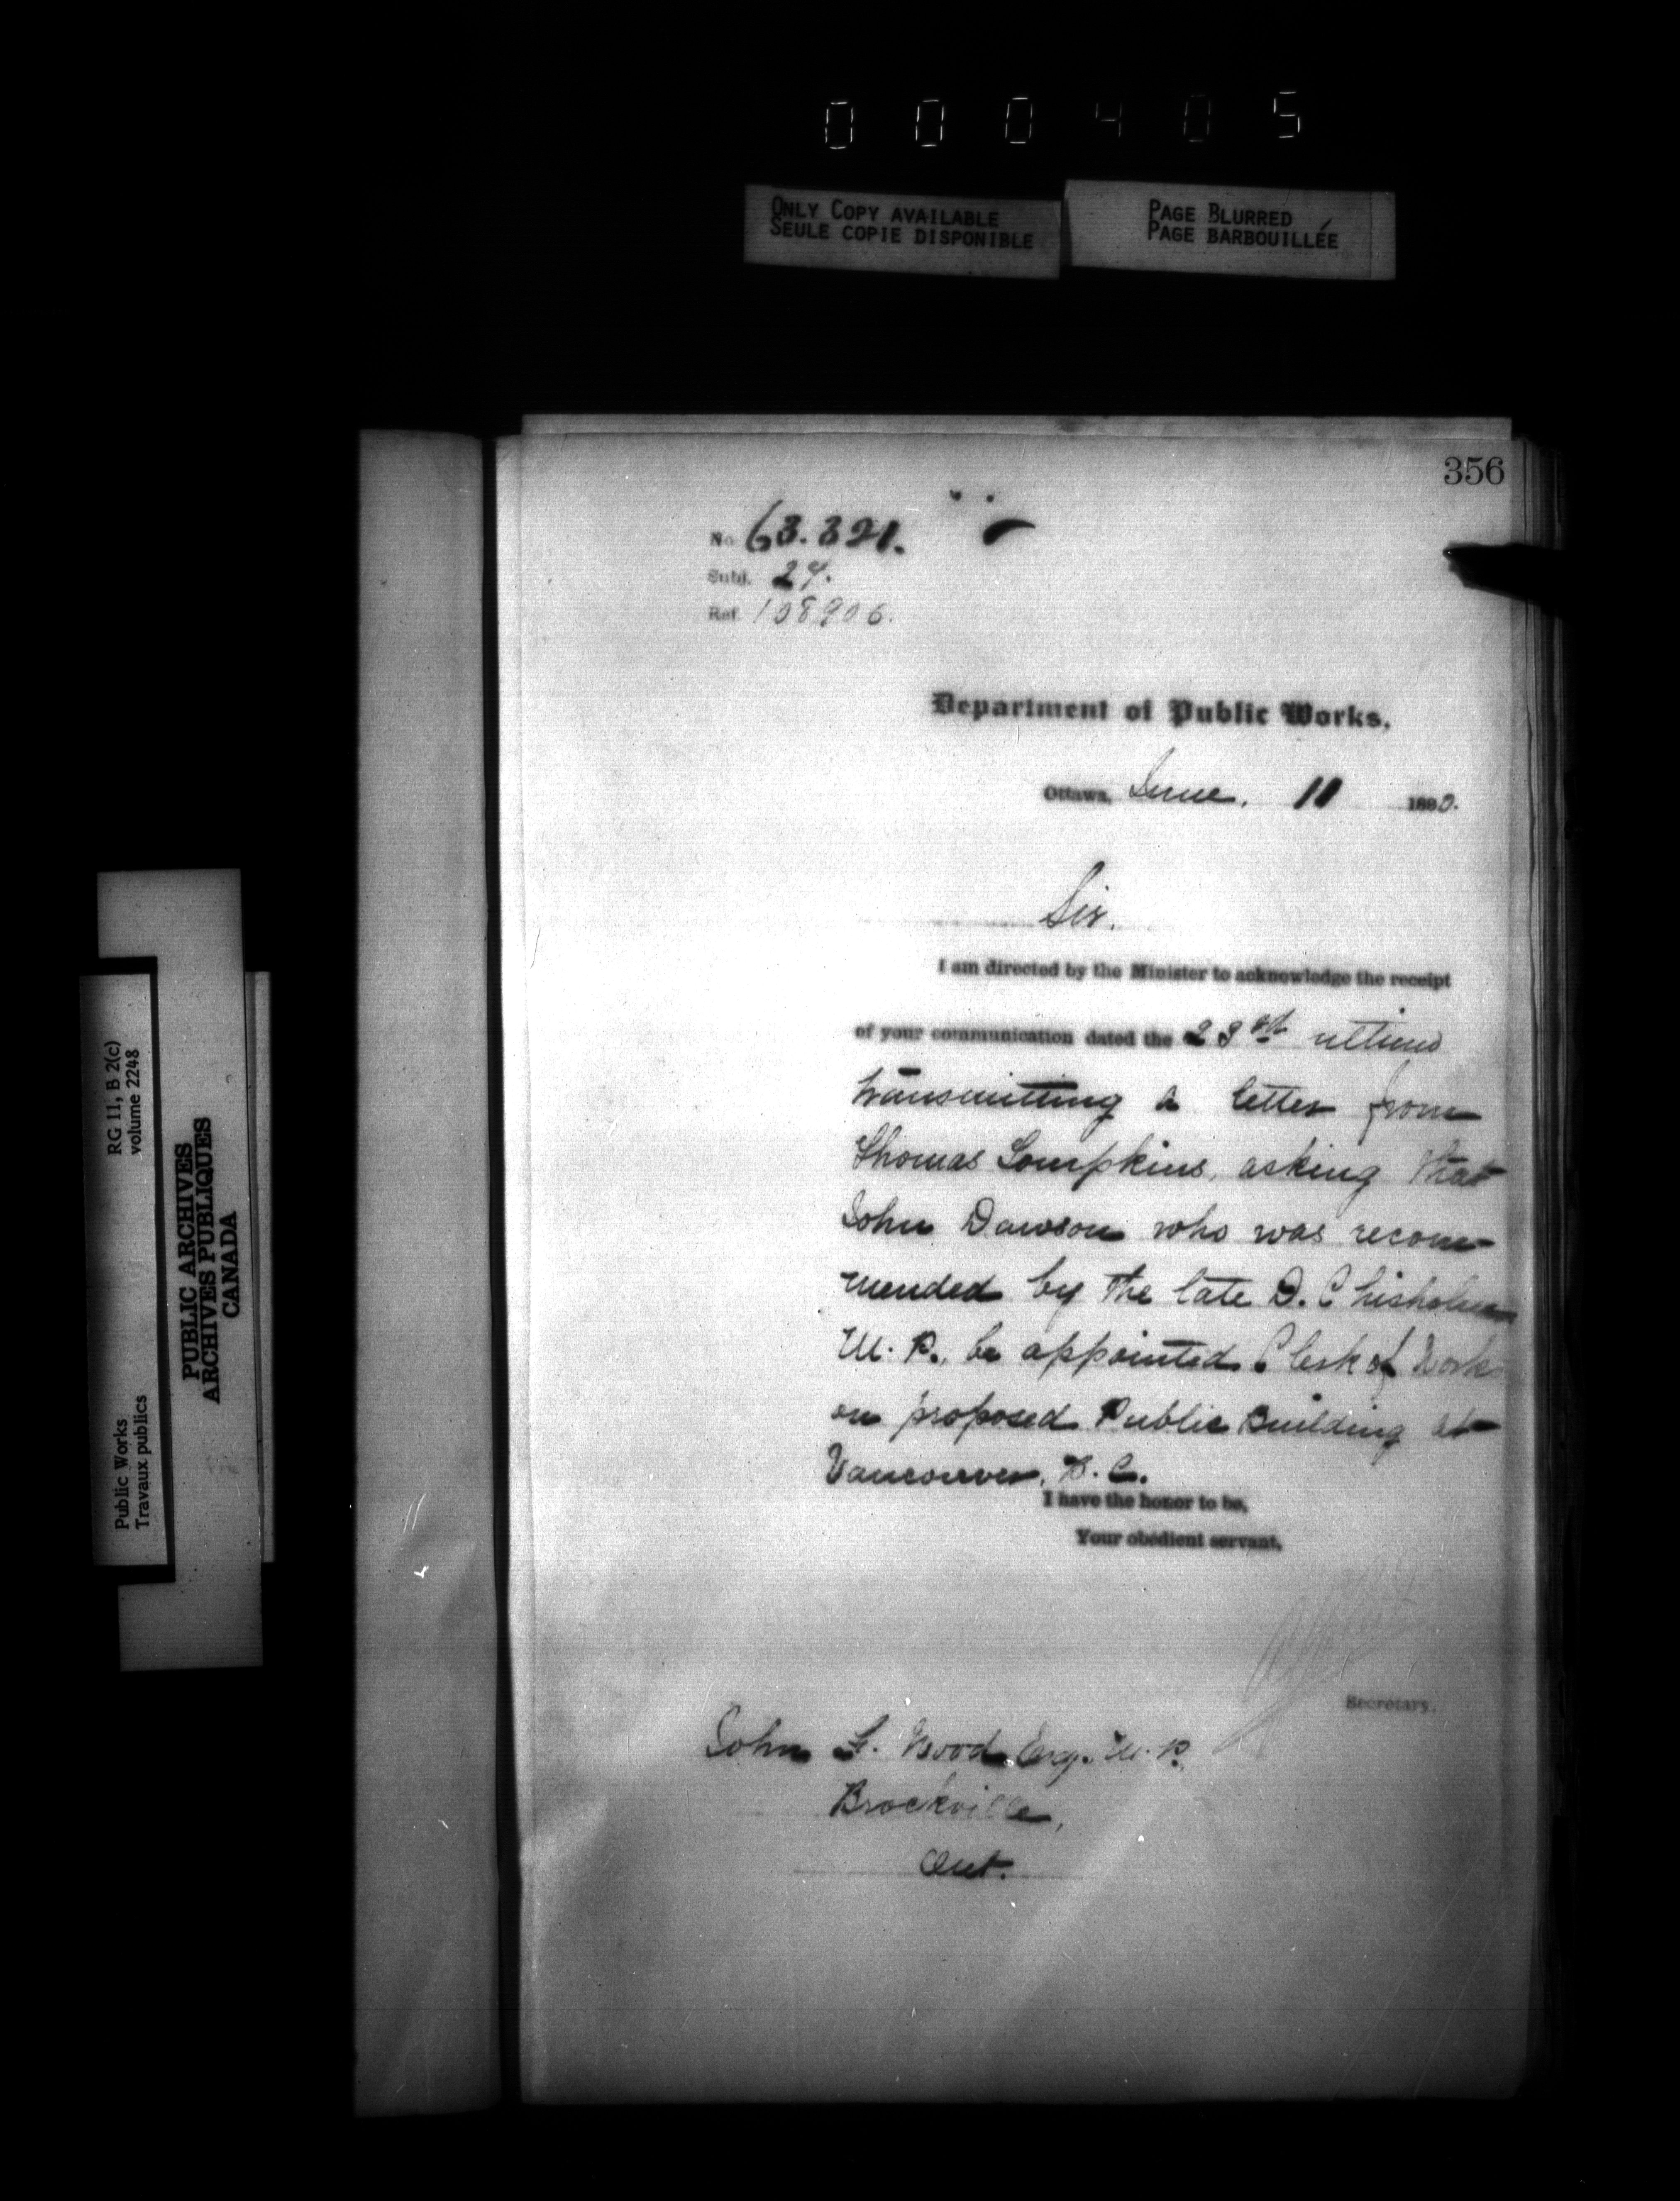 000405
ONLY COPY AVAILABLE
SEULE COPIE DISPONIBLE
PAGE BLURRED
PAGE BARBOUILLÉE
356
No. 63.321.
Subj. 24.
Ref. 108906.
Department of Public Works,
Ottawa, June, 11 1890.
Sir.
I am directed by the Minister to acknowledge the receipt
of your communication dated the 23rd ultimo
transmitting a letter from
Thomas Tompkins, asking that
John Dawson who was recom-
mended by the late D. Chisholm
M.P., be appointed Clerk of Works
on proposed Public Building at
Vancouver, B.C.
I have the honor to be,
Your obedient servant,
Secretary.
John F. Wood Esq. M.P.
Brockville,
Ont.
RG 11, B 2(c)
volume 2248
Public Works
Travaux publics
PUBLIC ARCHIVES
ARCHIVES PUBLIQUES
CANADA